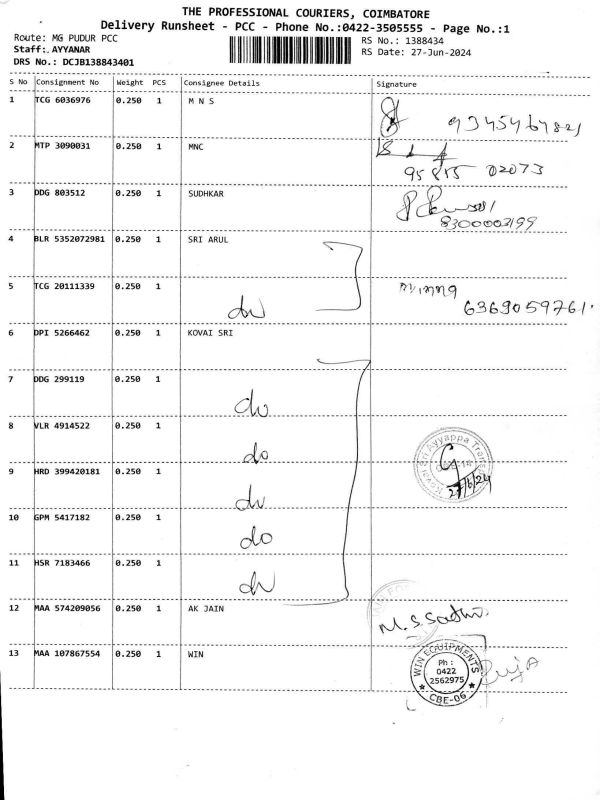 THE PROFESSIONAL COURIERS, COIMBATORE
Delivery Runsheet - PCC - Phone No.:0422-3505555 - Page No.:1
Route: MG PUDUR PCC
RS No.: 1388434
Staff: AYYANAR
RS Date: 27-Jun-2024
DRS No.: DCJB138843401
S No Consignment No Weight PCS Consignee Details Signature
1 TCG 6036976 0.250 1 M N S
2 MTP 3090031 0.250 1 MNC
95855 02073
3 DDG 803512 0.250 1 SUDHKAR
8300003199
4 BLR 5352072981 0.250 1 SRI ARUL
5 TCG 20111339 0.250 1
do 6369059761.
6 DPI 5266462 0.250 1 KOVAI SRI
7 DDG 299119 0.250 1
do
8 VLR 4914522 0.250 1
do
Kovai Sri Ayyappa Trans
9 HRD 399420181 0.250 1
27/6/24
do
10 GPM 5417182 0.250 1
do
11 HSR 7183466 0.250 1
do
12 MAA 574209056 0.250 1 AK JAIN
M.S. Sathi
13 MAA 107867554 0.250 1 WIN
WIN EQUIPMENTS
Ph :
0422
2562975
CBE-06